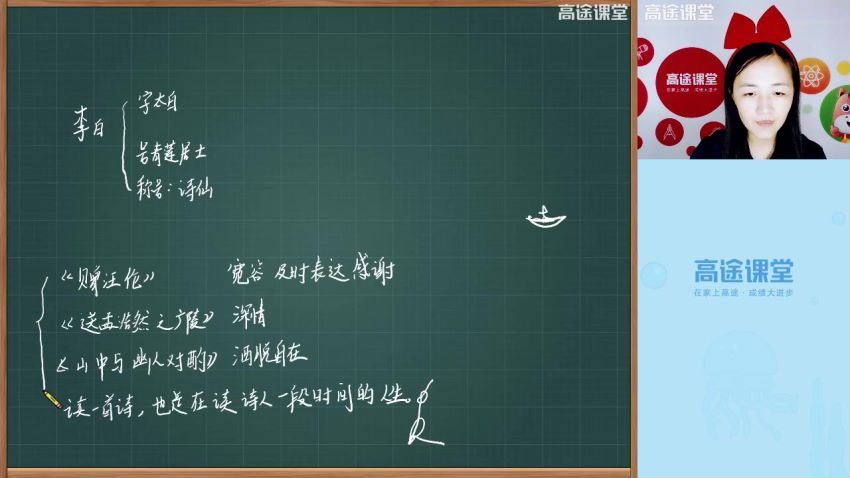 高途课堂
高途课堂
高途课堂
在家上高途·成绩大进步
李白
字太白
号青莲居士
称号：诗仙
《赠汪伦》 宽容 及时表达感谢
《送孟浩然之广陵》 深情
《山中与幽人对酌》 洒脱自在
读一首诗，也是在读诗人一段时间的人生。
高途课堂
在家上高途·成绩大进步